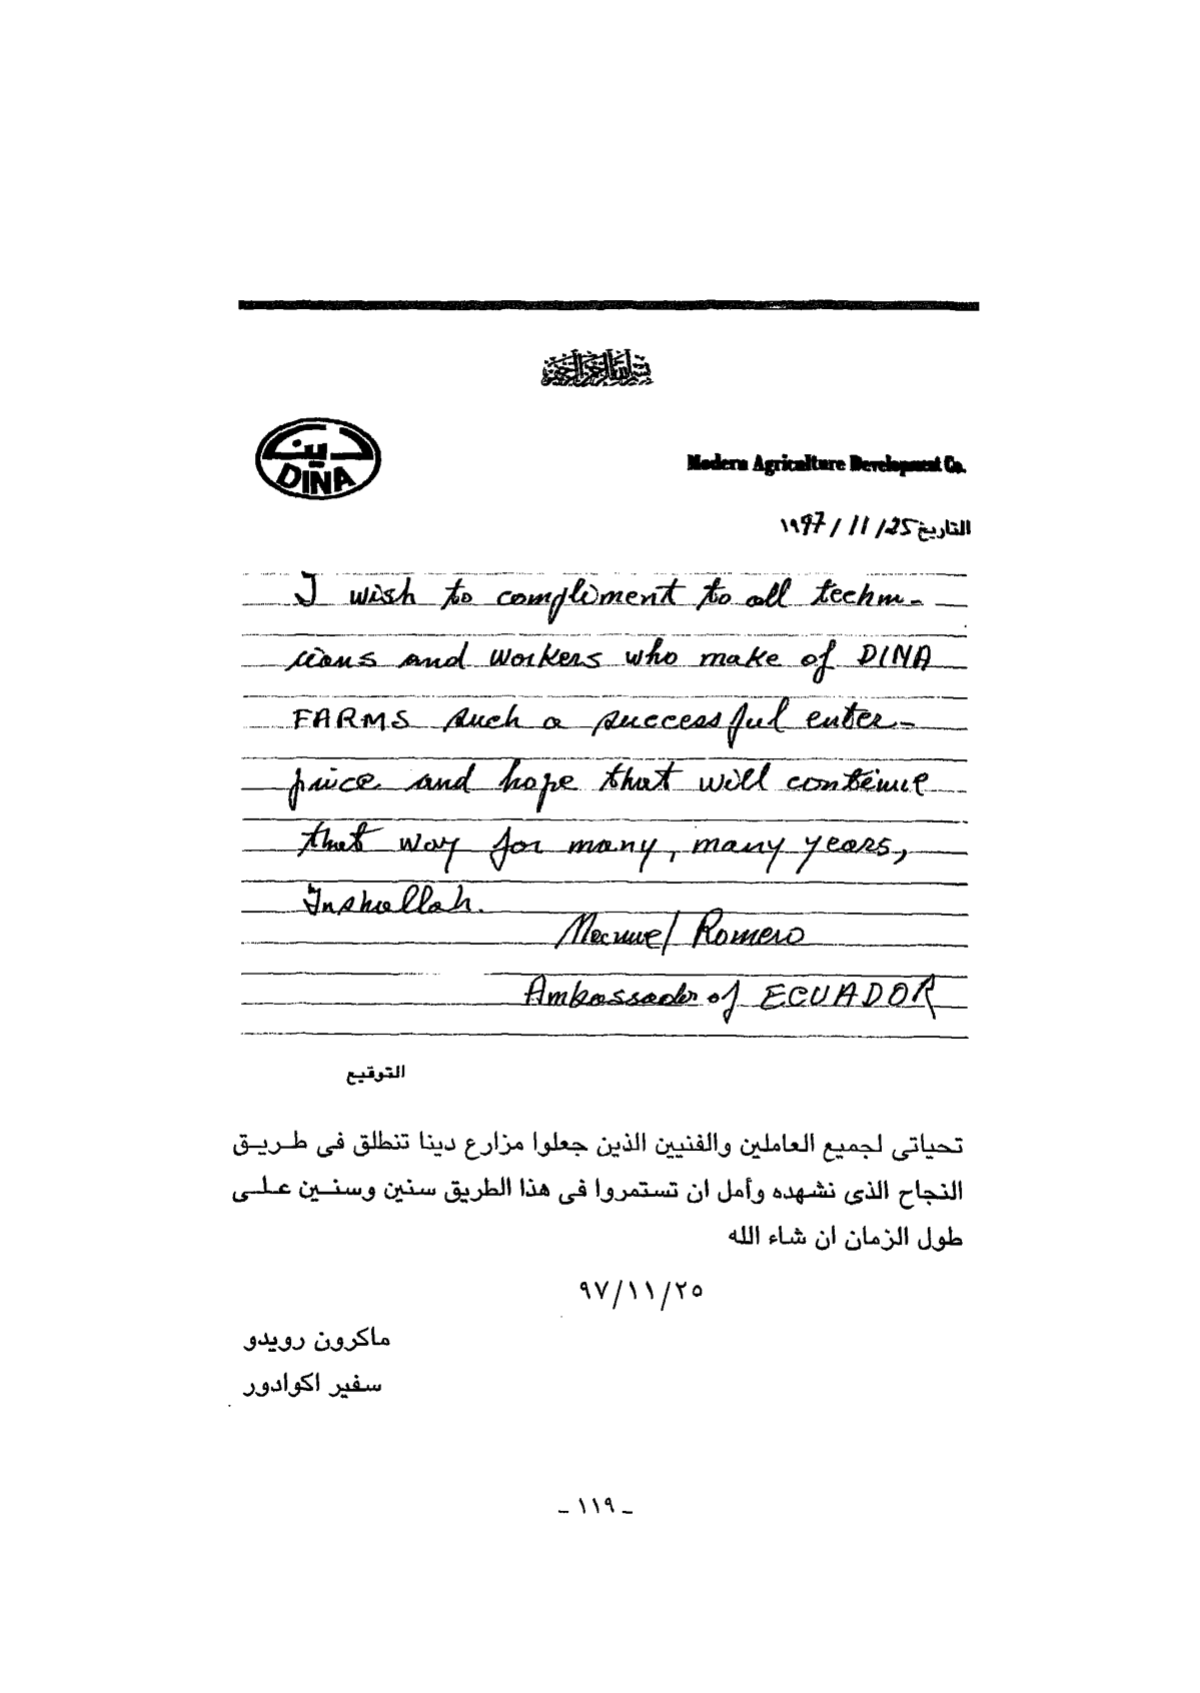 بسم الله الرحمن الرحيم
دينا
DINA
Modern Agriculture Development Co.
التاريخ 25/ 11 / 1997
I wish to compliment to all techni-
cians and workers who make of DINA
FARMS such a successful enter-
price and hope that will continue
that way for many, many years,
Inshallah.
Manuel Romero
Ambassador of ECUADOR
التوقيع
تحياتى لجميع العاملين والفنيين الذين جعلوا مزارع دينا تنطلق فى طريق
النجاح الذى نشهده وأمل ان تستمروا فى هذا الطريق سنين وسنين على
طول الزمان ان شاء الله
٩٧/١١/٢٥
ماكرون رويدو
سفير اكوادور
ـ ١١٩ ـ